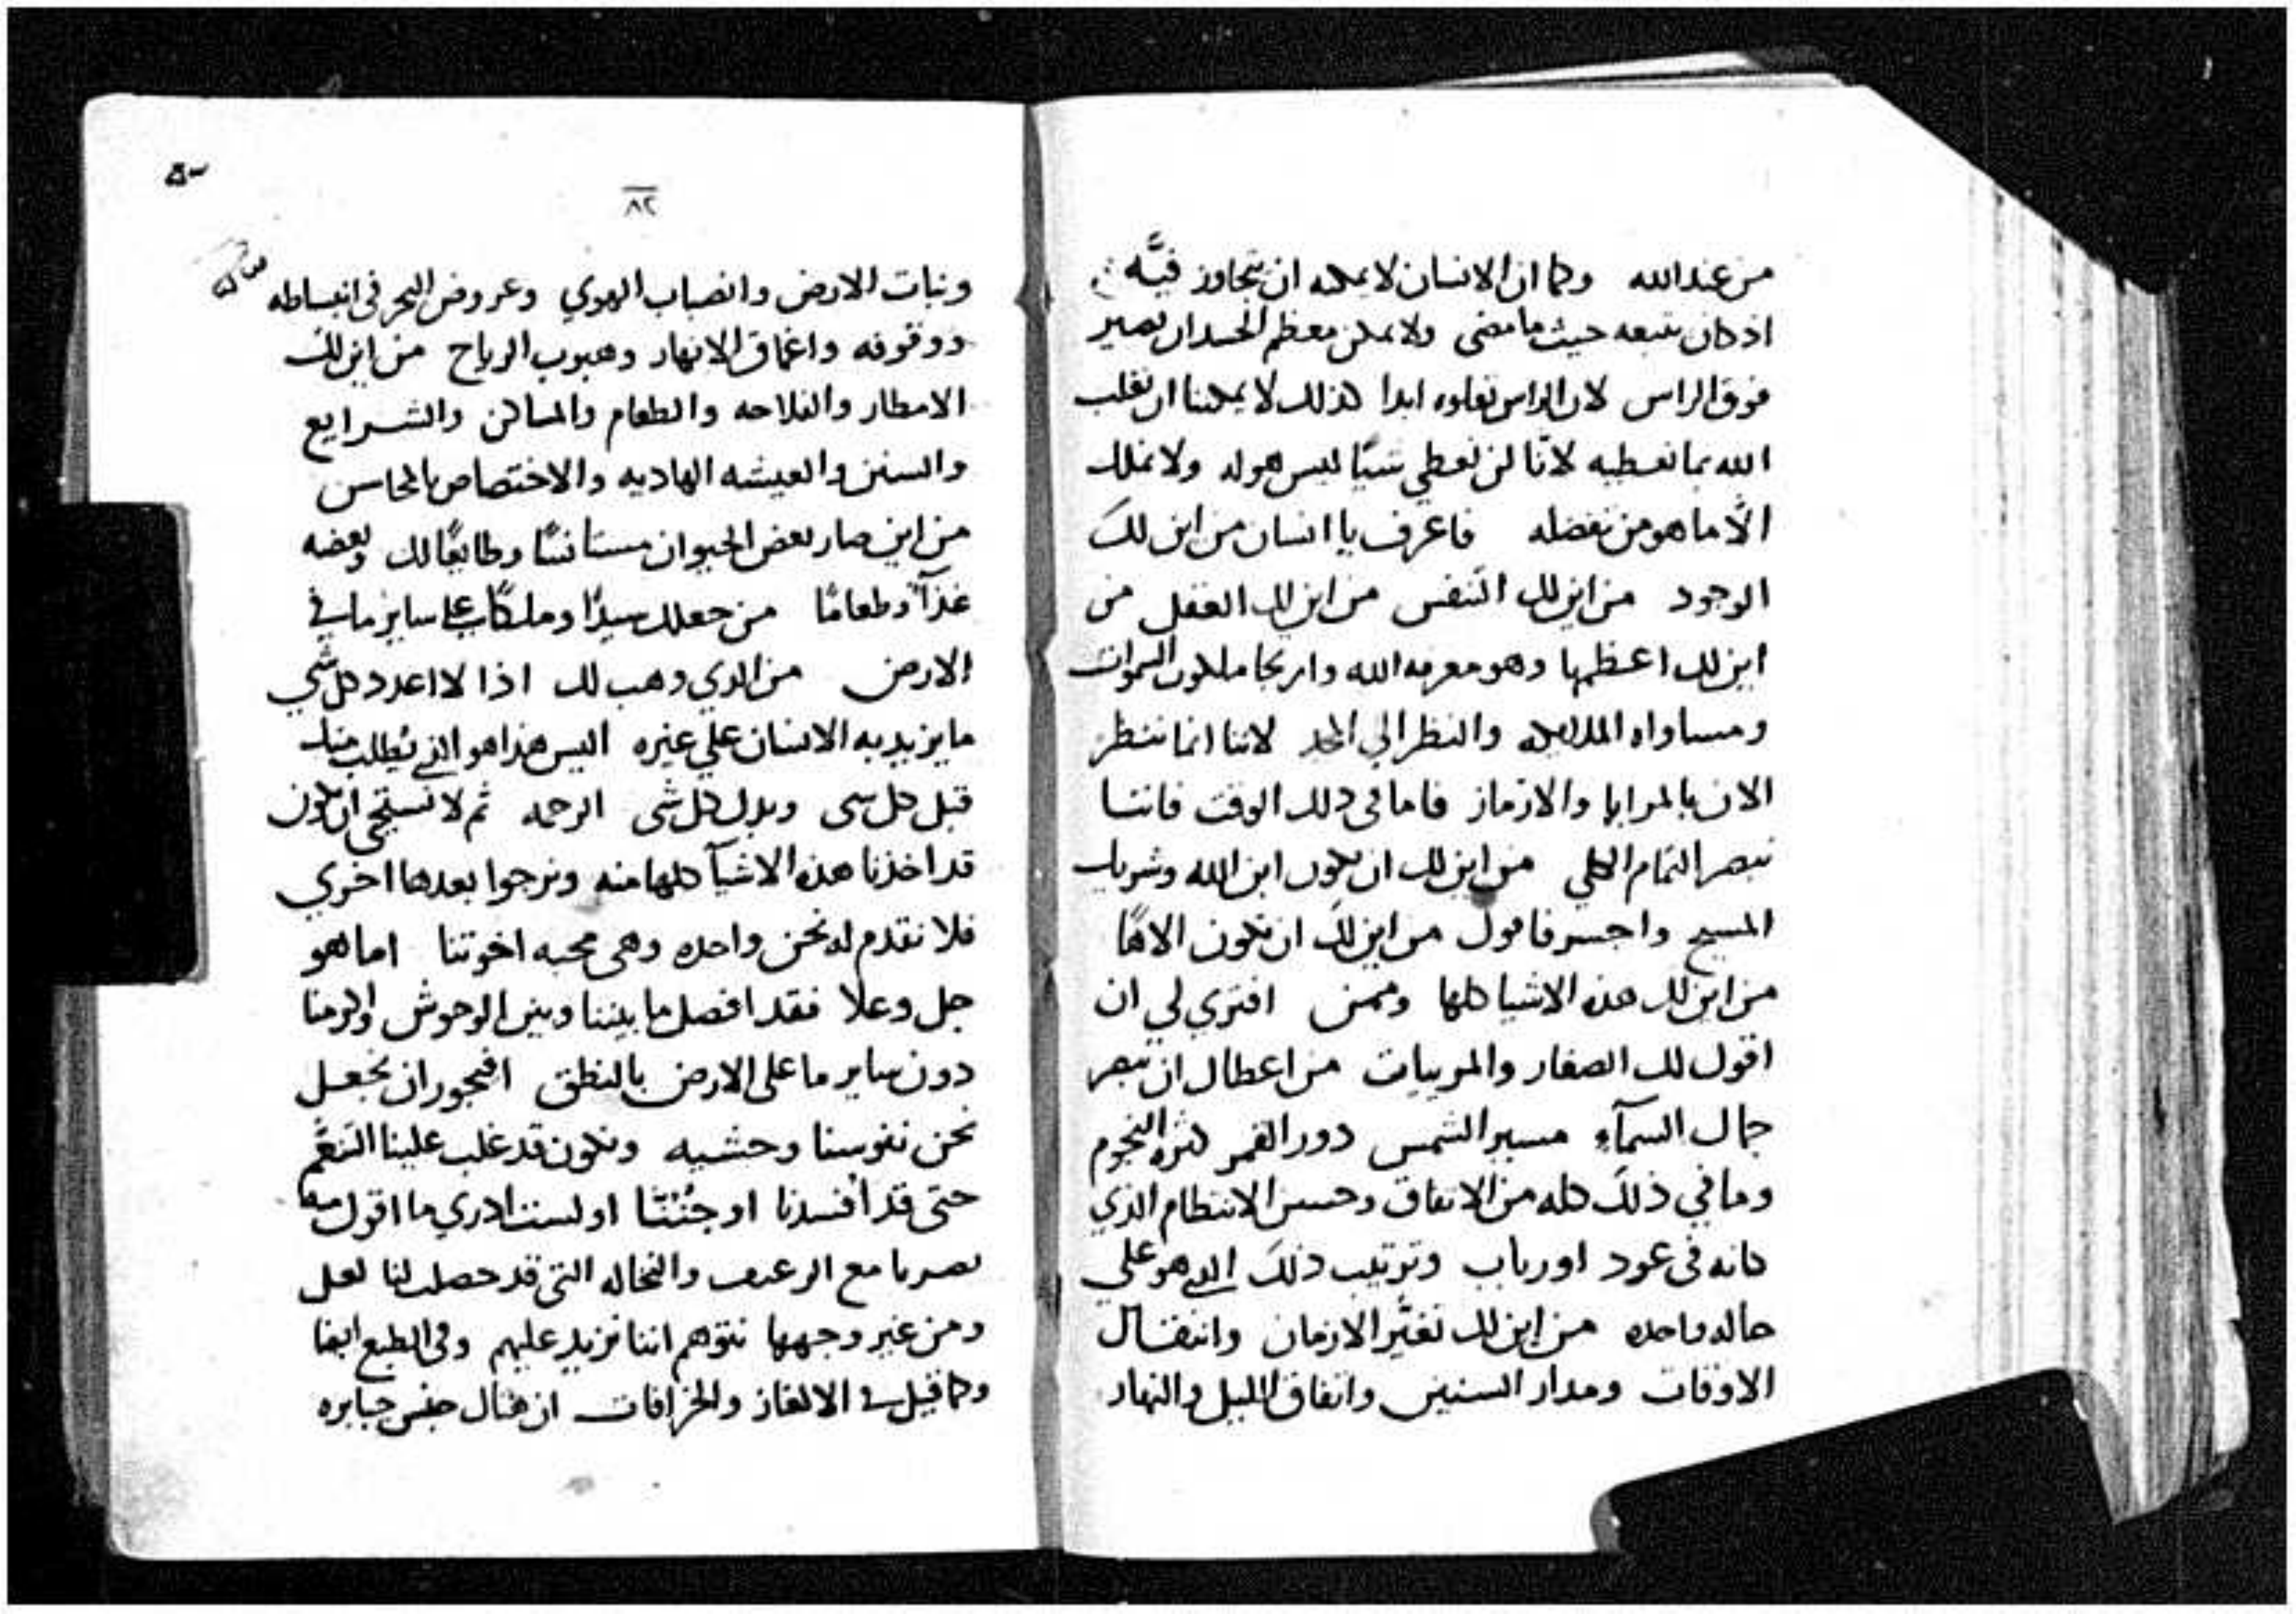 من عندالله وكما ان الانسان لا يمكنه ان يتجاوز فيَّه
اذ كان يتبعه حيث ما مضى ولا يمكن معظم الجسد ان يصير
فوق الراس لان الراس تعلوه ابدا كذلك لا يمكننا ان نغلب
الله بما نعطيه لانّا لن نعطي شيًا ليس هو له ولا نملك
الّا ما هو من تفضله فاعرف يا انسان من اين لكَ
الوجود من اين لك التنفس من اين لك العقل من
اين لك اعظمها وهو معرفه الله وارتجا ملكوت السموات
ومساواه الملايكه والنظر الي المجد لاننا انما ننظر
الان بالمرايا والالغاز فاما في ذلك الوقت فاننا
نبصر التمام الكلي من اين لك ان تكون ابن الله وشريك
المسيح واجسر فاقول من اين لك ان تكون الاهًا
من اين لك هذه الاشيا كلها وممن افتري لي ان
اقول لك الصغار والمرييات من اعطاك ان تبصر
جمال السمآء مسير الشمس دور القمر كثره النجوم
وما في ذلك كله من الاتفاق وحسن الانتظام الذي
كانه في عود او رباب وترتيب ذلكَ الذي هو علي
حاله واحده من اين لك تغيّر الازمان وانتقال
الاوقات ومدار السنين واتفاق الليل والنهار
٨٢
ونبات الارض وانصباب الهوي وعروض البحر في انبساطه
ووقوفه واعماق الانهار وهبوب الرياح من اين لك
الامطار والفلاحه والطعام والمساكن والشرايع
والسنن والعيشه الهاديه والاختصاص بالمحاسن
من اين صار بعض الحيوان مستانسًا وطايعًا لك وبعضه
غذآً وطعامًا من جعلك سيدًا وملكًا علي ساير ما في
الارض من الذي وهب لك اذا لا اعدد كل شي
ما يزيد به الانسان علي غيره اليس هذا هو الذي يُطلب منك
قبل كل شي وبدل كل شي الرحمه ثم لا نستحي ان نكون
قد اخذنا هذه الاشيآ كلها منه ونرجوا بعدها اخري
فلا نقدم له نحن واحده وهي محبه اخوتنا اما هو
جل وعلا فقد افصل ما بيننا وبين الوحوش واكرمنا
دون ساير ما على الارض بالنطق افيجوز ان نجعل
نحن نفوسنا وحشيه ونكون قد غلب علينا التنعّم
حتى قد افسدنا او جُنّنَّا او لست ادري ما اقول
نصرنا مع الرغيف والنخاله التي قد حصلت لنا لعل
ومن غير وجهها نتوهم اننا نزيد عليهم وفي الطبع ايضا
وكما قيل في الالغاز والخرافات ان هناك جنس جبابره